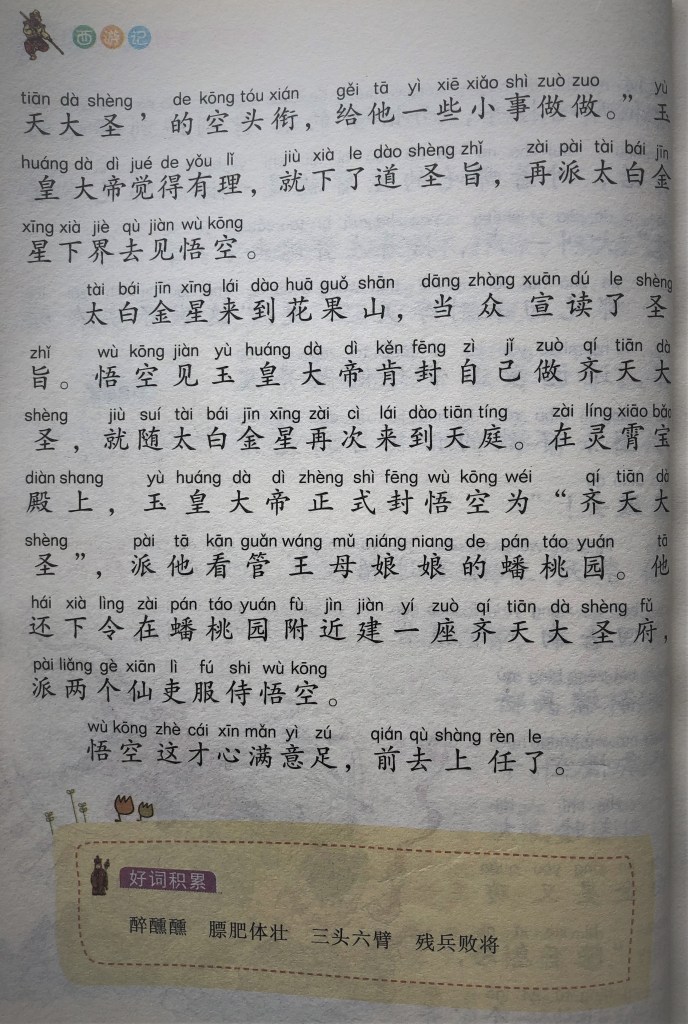 西游记
tiān dà shèng de kōng tóu xián gěi tā yì xiē xiǎo shì zuò zuo yù
天大圣’的空头衔，给他一些小事做做。”玉
huáng dà dì jué de yǒu lǐ jiù xià le dào shèng zhǐ zài pài tài bái jīn
皇大帝觉得有理，就下了道圣旨，再派太白金
xīng xià jiè qù jiàn wù kōng
星下界去见悟空。
tài bái jīn xīng lái dào huā guǒ shān dāng zhòng xuān dú le shèng
太白金星来到花果山，当众宣读了圣
zhǐ wù kōng jiàn yù huáng dà dì kěn fēng zì jǐ zuò qí tiān dà
旨。悟空见玉皇大帝肯封自己做齐天大
shèng jiù suí tài bái jīn xīng zài cì lái dào tiān tíng zài líng xiāo bǎo
圣，就随太白金星再次来到天庭。在灵霄宝
diàn shang yù huáng dà dì zhèng shì fēng wù kōng wéi qí tiān dà
殿上，玉皇大帝正式封悟空为“齐天大
shèng pài tā kān guǎn wáng mǔ niáng niang de pán táo yuán tā
圣”，派他看管王母娘娘的蟠桃园。他
hái xià lìng zài pán táo yuán fù jìn jiàn yí zuò qí tiān dà shèng fǔ
还下令在蟠桃园附近建一座齐天大圣府，
pài liǎng gè xiān lì fú shi wù kōng
派两个仙吏服侍悟空。
wù kōng zhè cái xīn mǎn yì zú qián qù shàng rèn le
悟空这才心满意足，前去上任了。
好词积累
醉醺醺 膘肥体壮 三头六臂 残兵败将